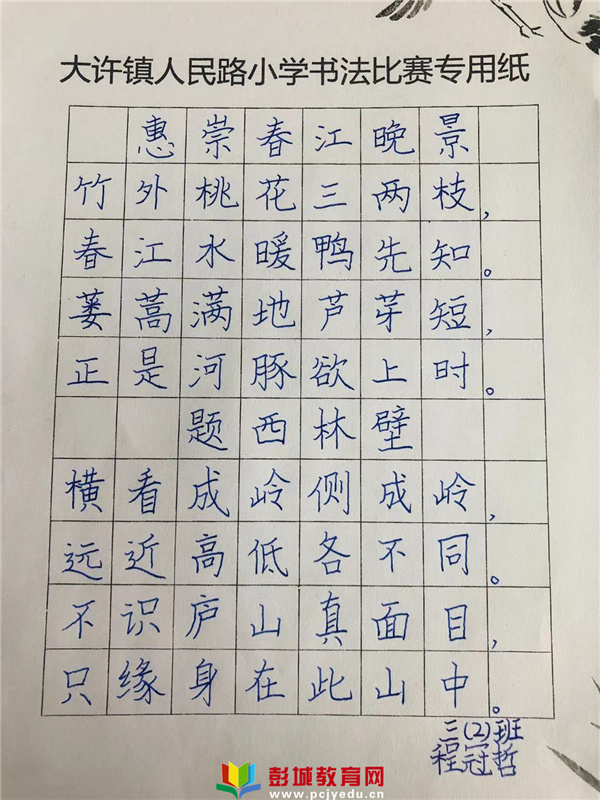 大许镇人民路小学书法比赛专用纸
惠崇春江晚景
竹外桃花三两枝，
春江水暖鸭先知。
蒌蒿满地芦芽短，
正是河豚欲上时。
题西林壁
横看成岭侧成岭，
远近高低各不同。
不识庐山真面目，
只缘身在此山中。
三(2)班
程冠哲
彭城教育网
www.pcjyedu.cn